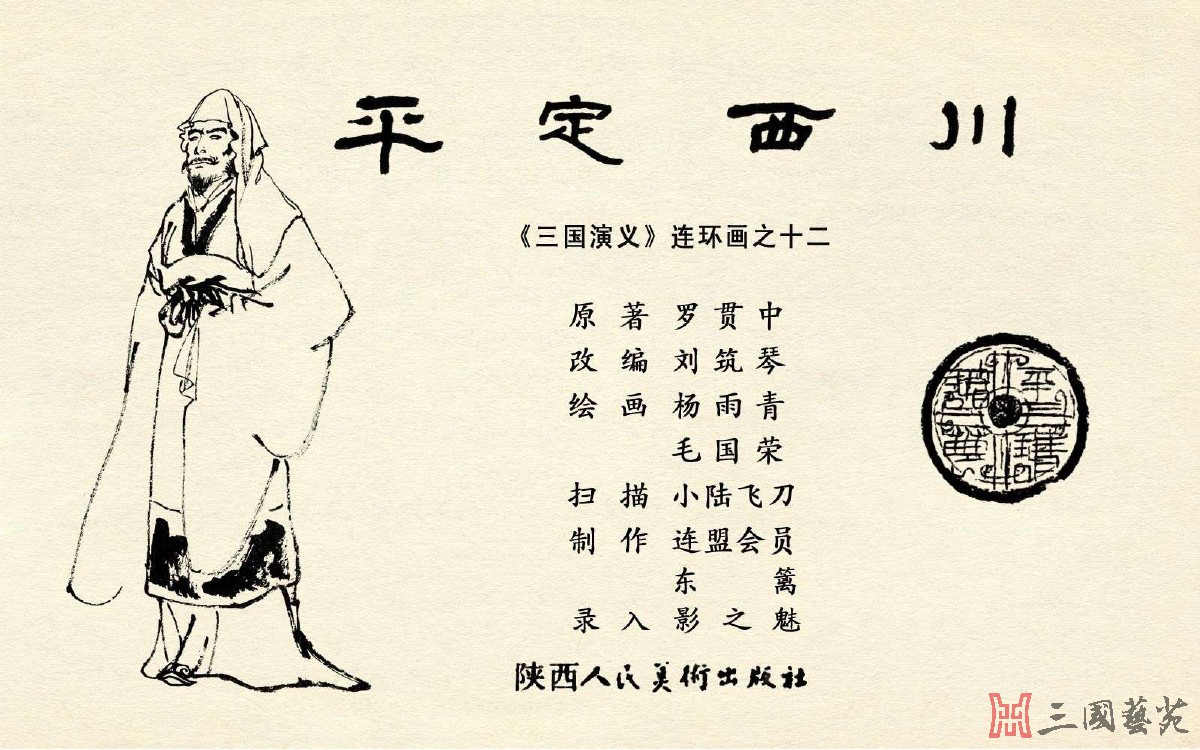 平定西川
《三国演义》连环画之十二
原著 罗贯中
改编 刘筑琴
绘画 杨雨青
毛国荣
扫描 小陆飞刀
制作 连盟会员
东篱
录入 影之魅
陕西人民美術出版社
三國藝苑